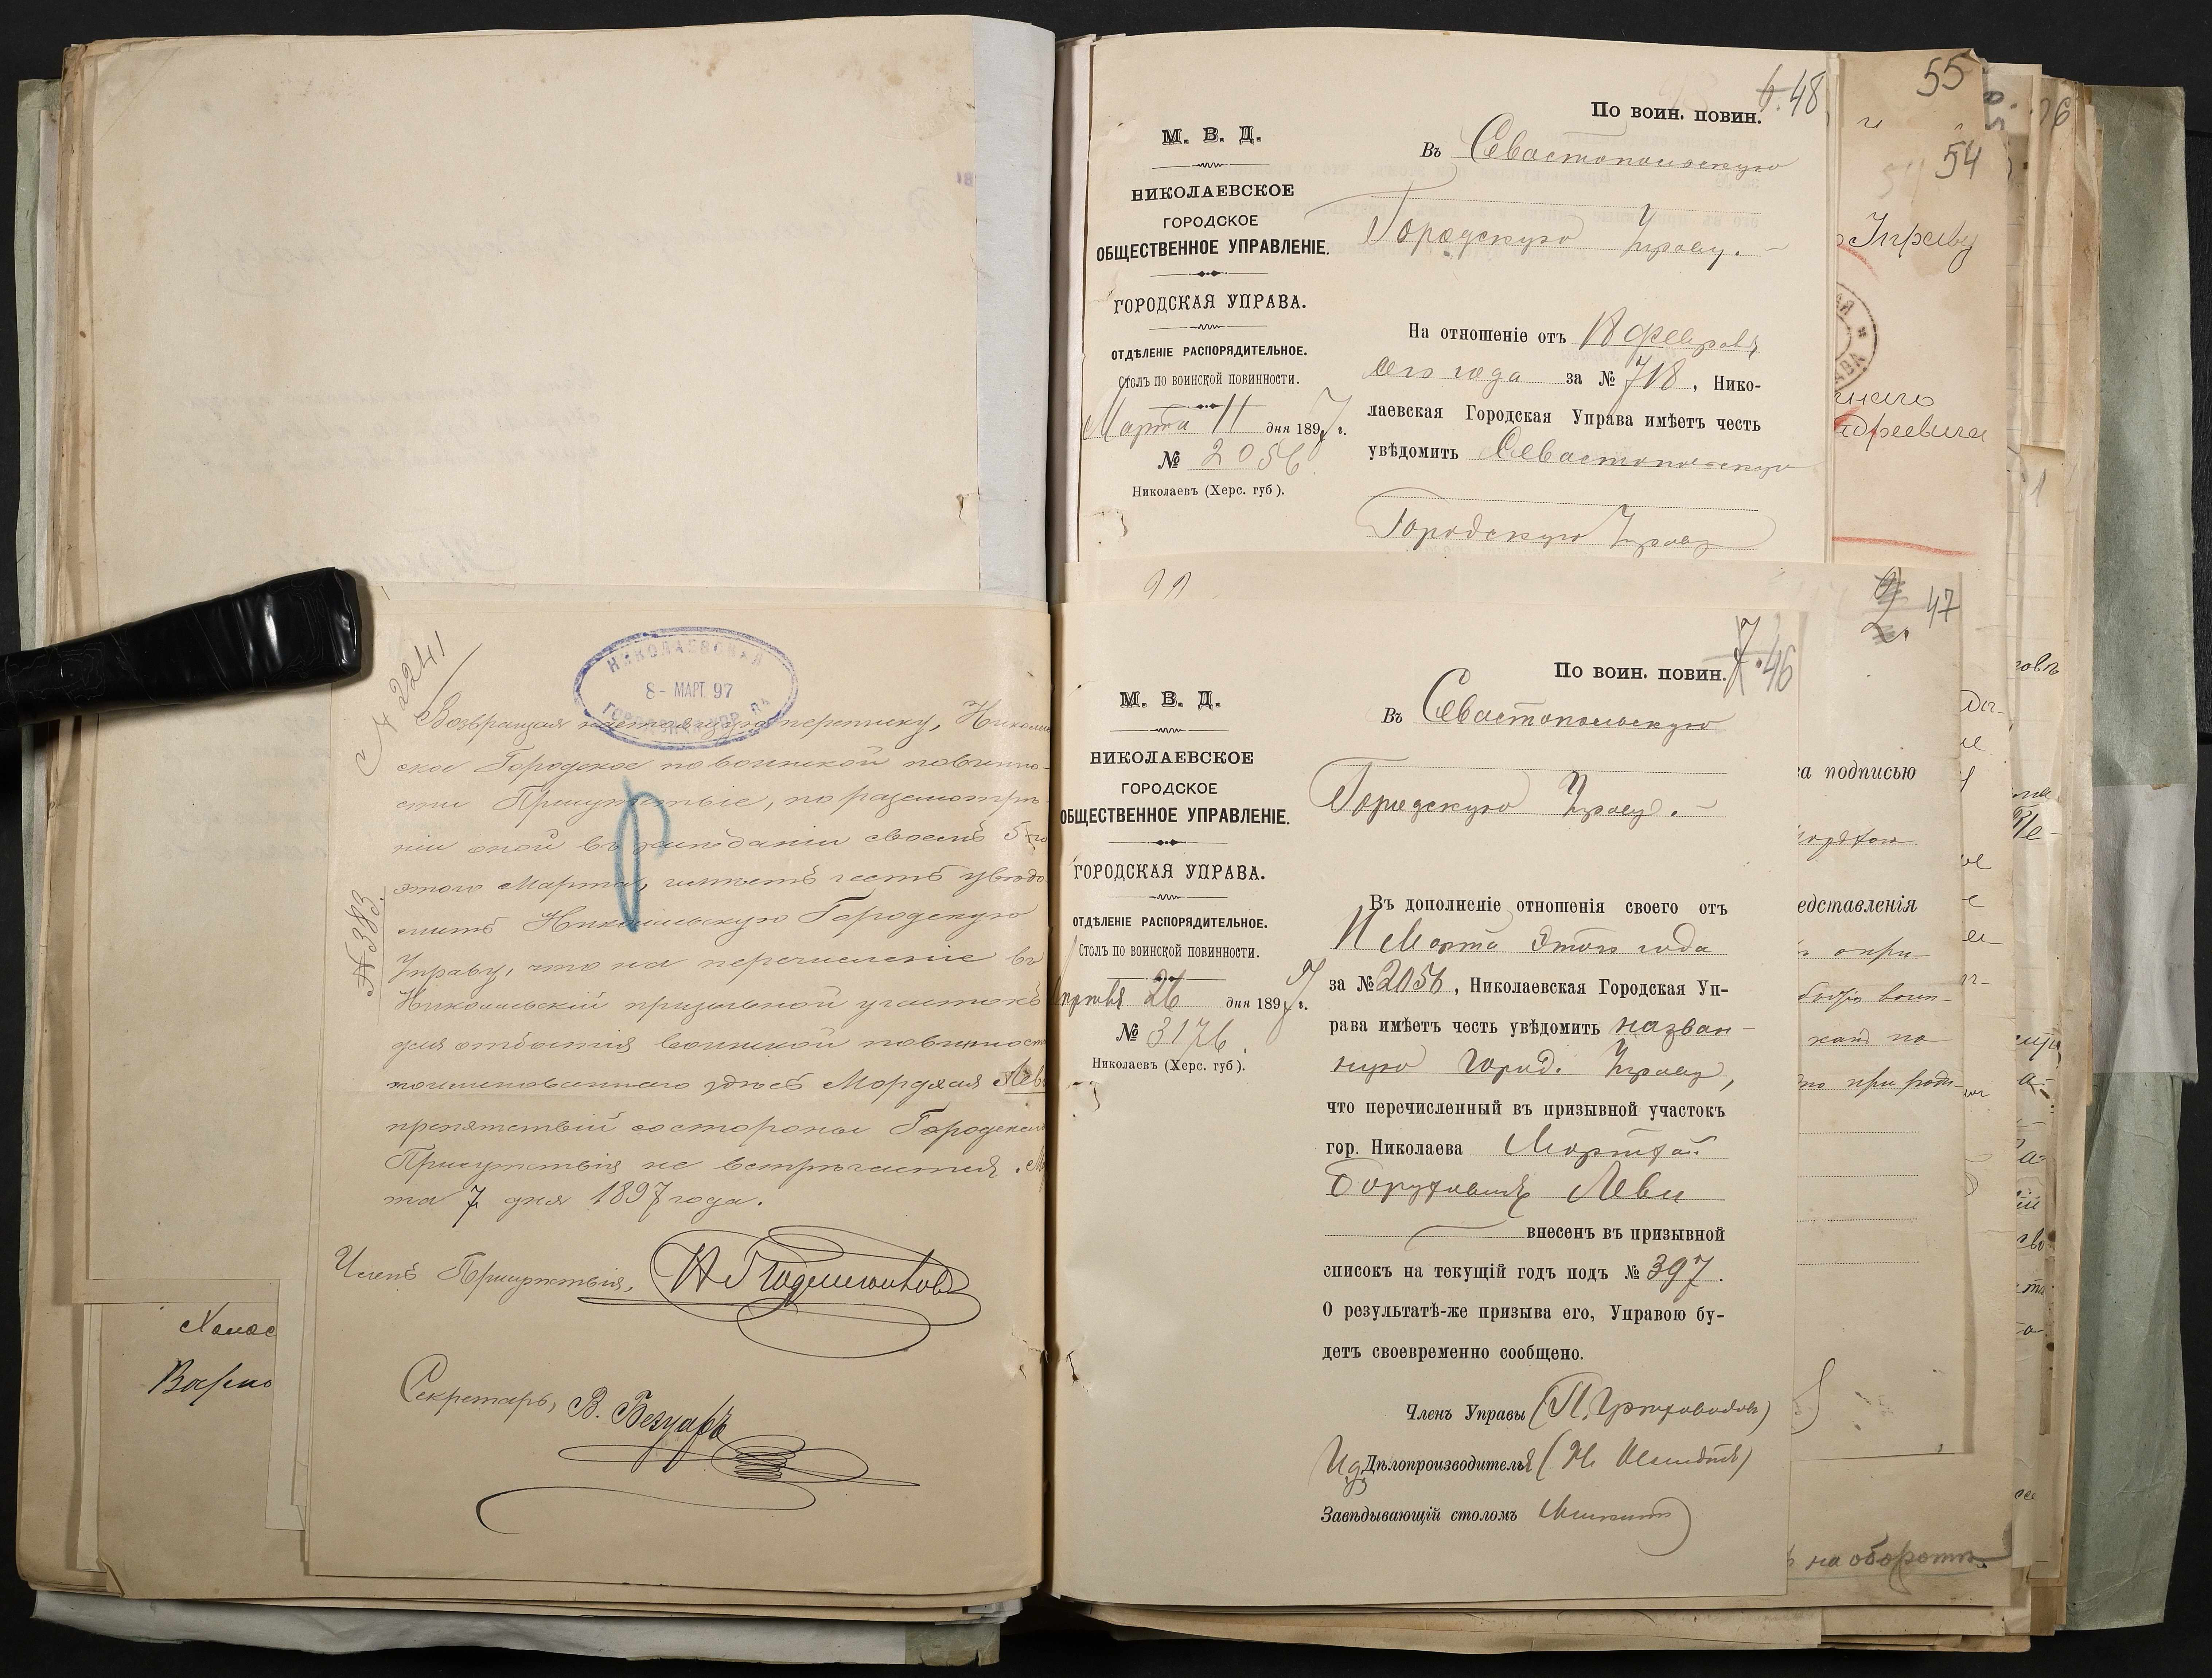 № 2241
НИКОЛАЕВСКАЯ
8- МАРТ 97
Возвращая настоящую переписку, Николаев
ское Городское по воинской повинно-
сти Присутствіе, по разсмотрѣ-
ніи оной въ засѣданіи своемъ 5-го
этого Марта, имѣетъ честь увѣдо
мить Николаевскую Городскую
Управу, что на перечисленіе въ
Николаевскій призывной участокъ
для отбытія воинской повинност
поименованнаго здѣсь Мордхая Лев
препятствій со стороны Городского
Присутствія не встрѣчается. Ма
та 7 дня 1897 года.
№ 383.
Членъ Присутствія,
Секретарь, В.
По воин. повин.
6. 48
М. В. Д.
НИКОЛАЕВСКОЕ
ГОРОДСКОЕ
ОБЩЕСТВЕННОЕ УПРАВЛЕНІЕ.
ГОРОДСКАЯ УПРАВА.
ОТДѢЛЕНІЕ РАСПОРЯДИТЕЛЬНОЕ.
Столъ по воинской повинности.
Марта 11 дня 1897 г.
№ 2056
Николаевъ (Херс. губ).
Въ Севастопольскую
Городскую Управу.
На отношеніе отъ 18 февраля
сего года за № 718, Нико-
лаевская Городская Управа имѣетъ честь
увѣдомить Севастопольскую
Городскую Управу
55
54
Управу
47
По воин. повин.
7. 46
М. В. Д.
НИКОЛАЕВСКОЕ
ГОРОДСКОЕ
ОБЩЕСТВЕННОЕ УПРАВЛЕНІЕ.
ГОРОДСКАЯ УПРАВА.
ОТДѢЛЕНІЕ РАСПОРЯДИТЕЛЬНОЕ.
Столъ по воинской повинности.
Апрѣля 26 дня 1897 г.
№ 3176
Николаевъ (Херс. губ).
Въ Севастопольскую
Городскую Управу.
Въ дополненіе отношенія своего отъ
11 Марта этого года
за № 2056, Николаевская Городская Уп-
рава имѣетъ честь увѣдомить назван-
ную Город. Управу,
что перечисленный въ призывной участокъ
гор. Николаева Мортхай
Боруховичъ Леви
внесенъ въ призывной
списокъ на текущій годъ подъ № 397.
О результатѣ-же призыва его, Управою бу-
детъ своевременно сообщено.
Членъ Управы
И д Дѣлопроизводителя
Завѣдывающій столомъ
за подписью
едставленія
на оборотѣ